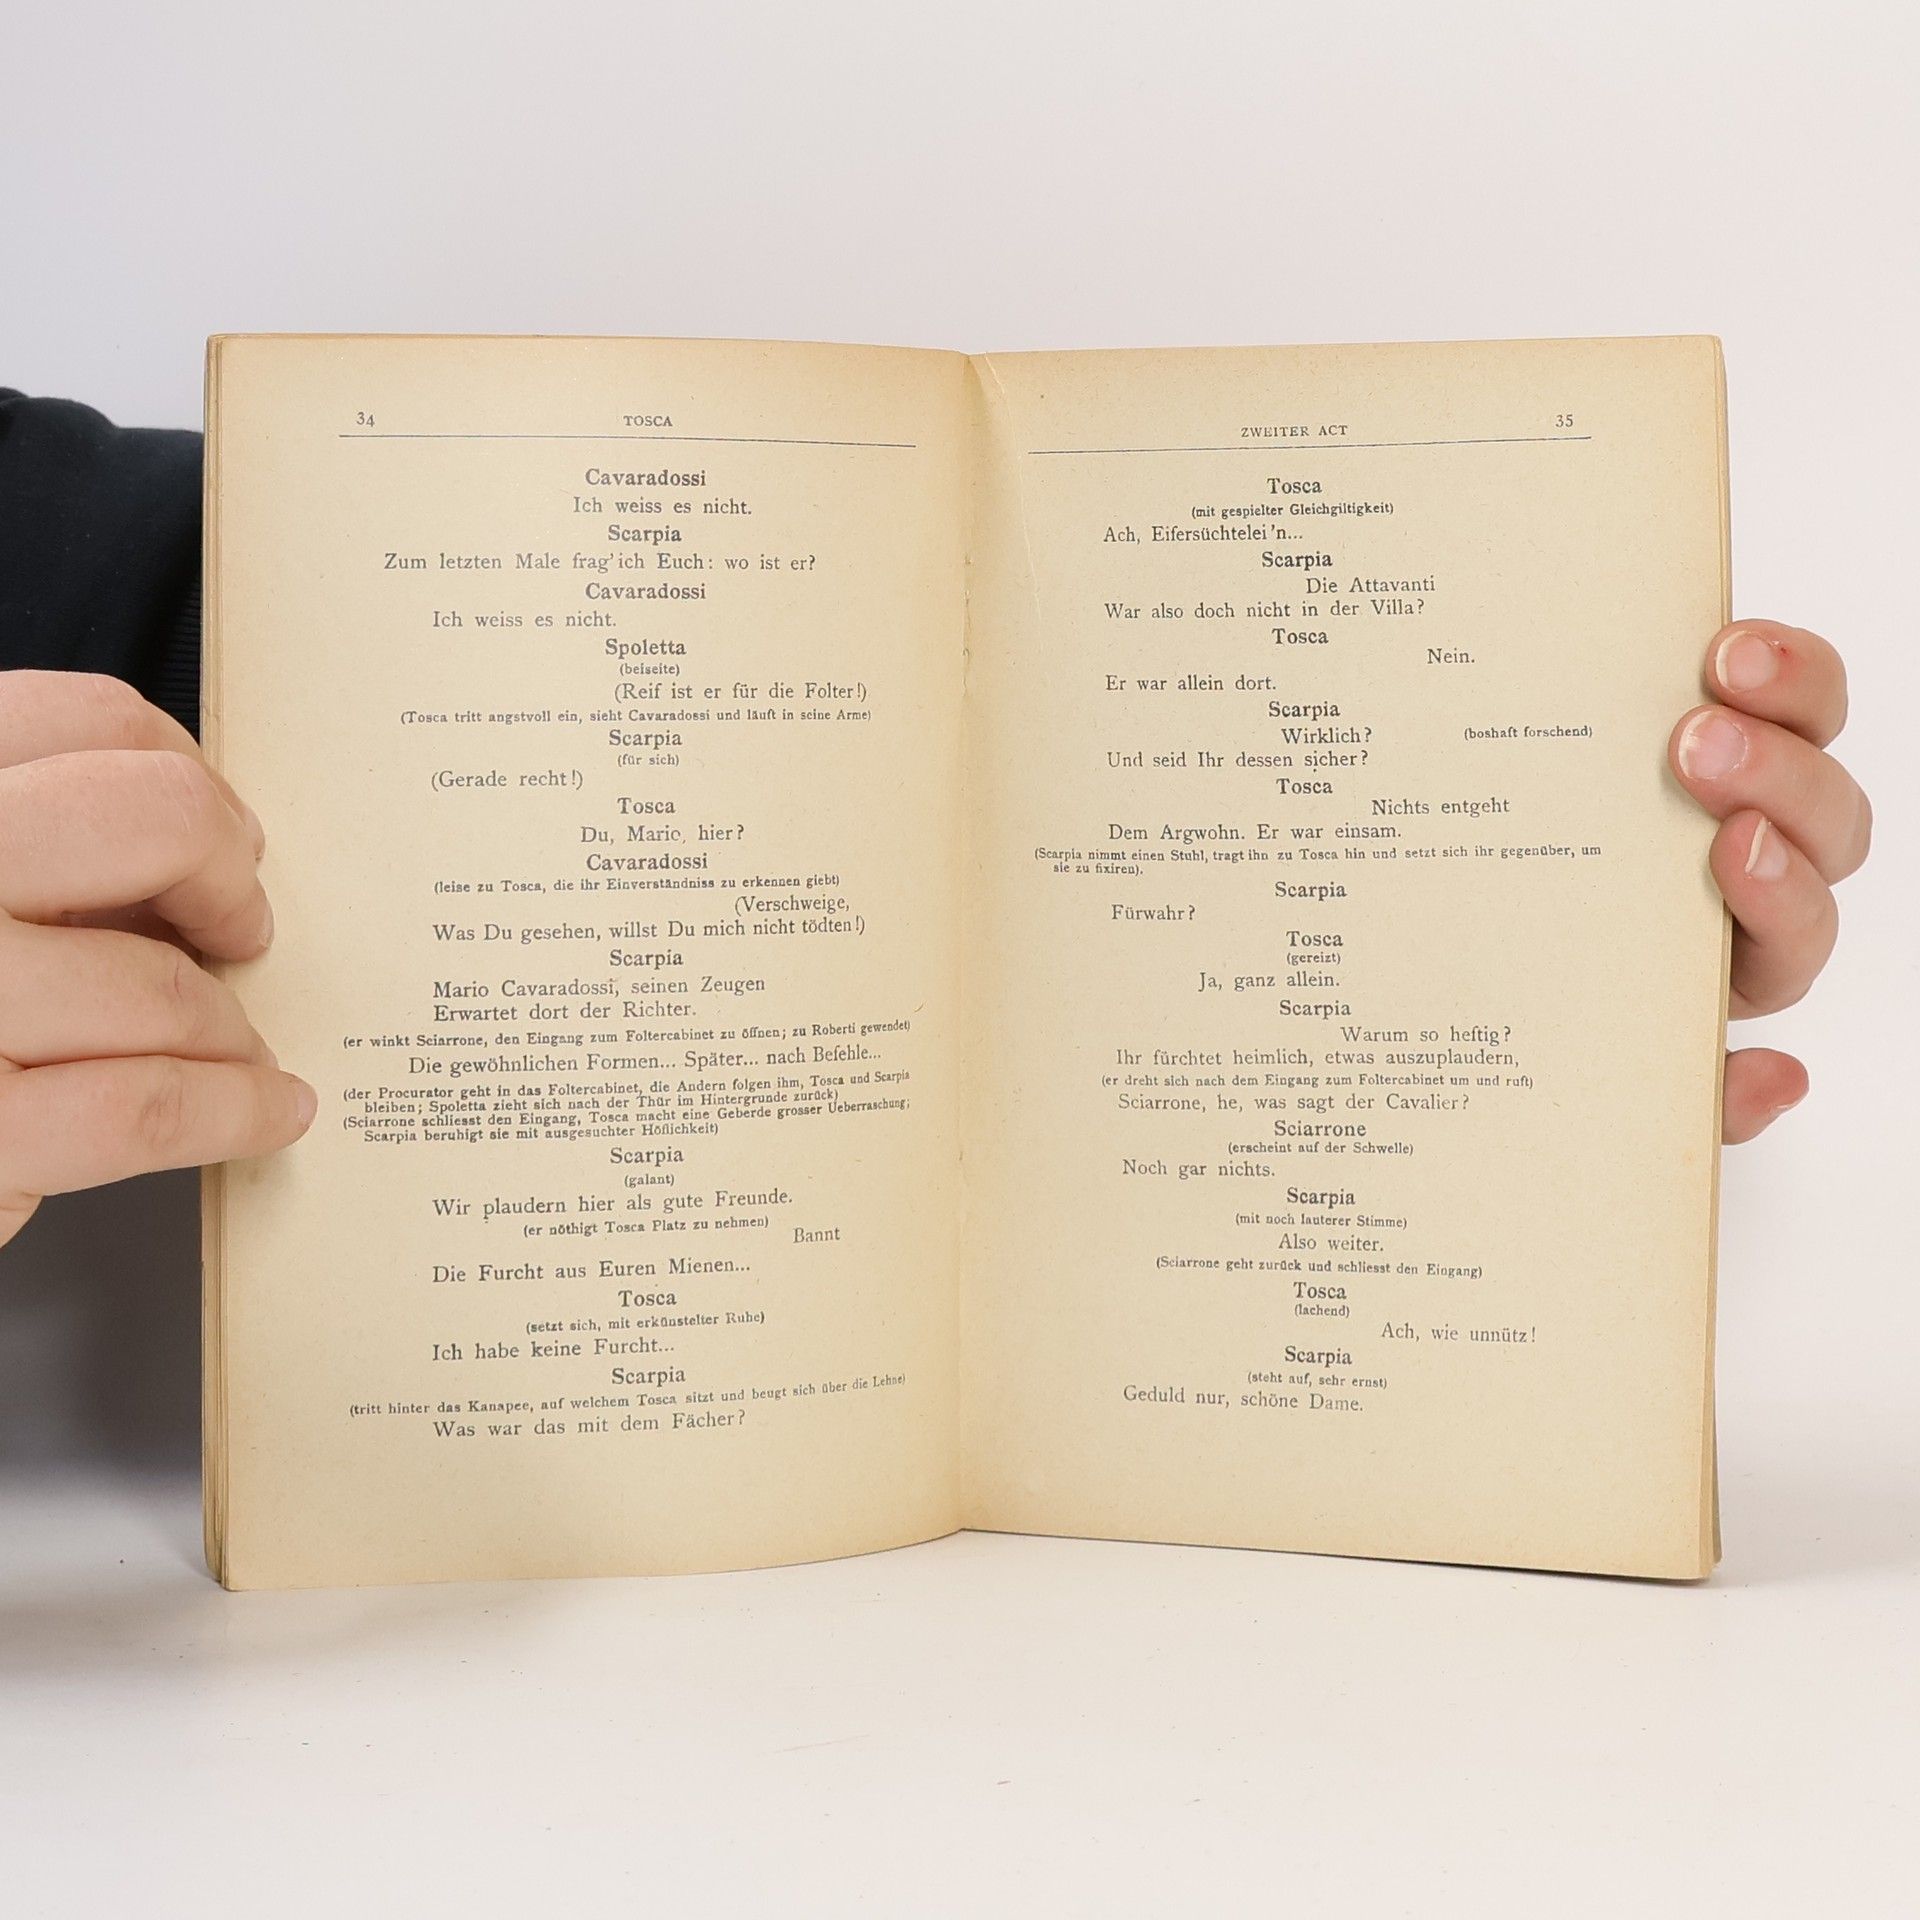 34
TOSCA
Cavaradossi
Ich weiss es nicht.
Scarpia
Zum letzten Male frag' ich Euch: wo ist er?
Cavaradossi
Ich weiss es nicht.
Spoletta
(beiseite)
(Reif ist er für die Folter!)
(Tosca tritt angstvoll ein, sieht Cavaradossi und läuft in seine Arme)
Scarpia
(für sich)
(Gerade recht!)
Tosca
Du, Mario, hier?
Cavaradossi
(leise zu Tosca, die ihr Einverständniss zu erkennen giebt)
(Verschweige,
Was Du gesehen, willst Du mich nicht tödten!)
Scarpia
Mario Cavaradossi, seinen Zeugen
Erwartet dort der Richter.
(er winkt Sciarrone, den Eingang zum Foltercabinet zu öffnen; zu Roberti gewendet)
Die gewöhnlichen Formen... Später... nach Befehle...
(der Procurator geht in das Foltercabinet, die Andern folgen ihm, Tosca und Scarpia
bleiben; Spoletta zieht sich nach der Thür im Hintergrunde zurück)
(Sciarrone schliesst den Eingang, Tosca macht eine Geberde grosser Ueberraschung;
Scarpia beruhigt sie mit ausgesuchter Höflichkeit)
Scarpia
(galant)
Wir plaudern hier als gute Freunde.
(er nöthigt Tosca Platz zu nehmen)
Bannt
Die Furcht aus Euren Mienen...
Tosca
(setzt sich, mit erkünstelter Ruhe)
Ich habe keine Furcht...
Scarpia
(tritt hinter das Kanapee, auf welchem Tosca sitzt und beugt sich über die Lehne)
Was war das mit dem Fächer?
ZWEITER ACT
35
Tosca
(mit gespielter Gleichgiltigkeit)
Ach, Eifersüchtelei'n...
Scarpia
Die Attavanti
War also doch nicht in der Villa?
Tosca
Nein.
Er war allein dort.
Scarpia
Wirklich? (boshaft forschend)
Und seid Ihr dessen sicher?
Tosca
Nichts entgeht
Dem Argwohn. Er war einsam.
(Scarpia nimmt einen Stuhl, tragt ihn zu Tosca hin und setzt sich ihr gegenüber, um
sie zu fixiren).
Scarpia
Fürwahr?
Tosca
(gereizt)
Ja, ganz allein.
Scarpia
Warum so heftig?
Ihr fürchtet heimlich, etwas auszuplaudern,
(er dreht sich nach dem Eingang zum Foltercabinet um und ruft)
Sciarrone, he, was sagt der Cavalier?
Sciarrone
(erscheint auf der Schwelle)
Noch gar nichts.
Scarpia
(mit noch lauterer Stimme)
Also weiter.
(Sciarrone geht zurück und schliesst den Eingang)
Tosca
(lachend)
Ach, wie unnütz!
Scarpia
(steht auf, sehr ernst)
Geduld nur, schöne Dame.